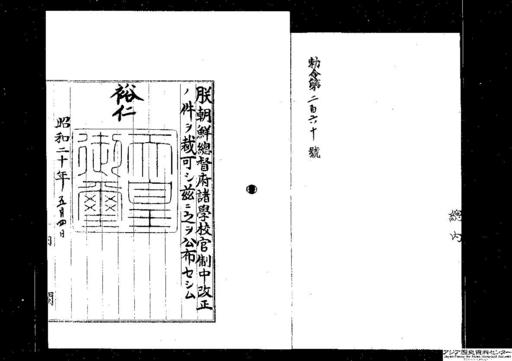 勅令第二百六十號
朕朝鮮總督府諸學校官制中改正
ノ件ヲ裁可シ茲ニ之ヲ公布セシム
裕仁
天皇
御璽
昭和二十年五月四日
アジア歴史資料センター